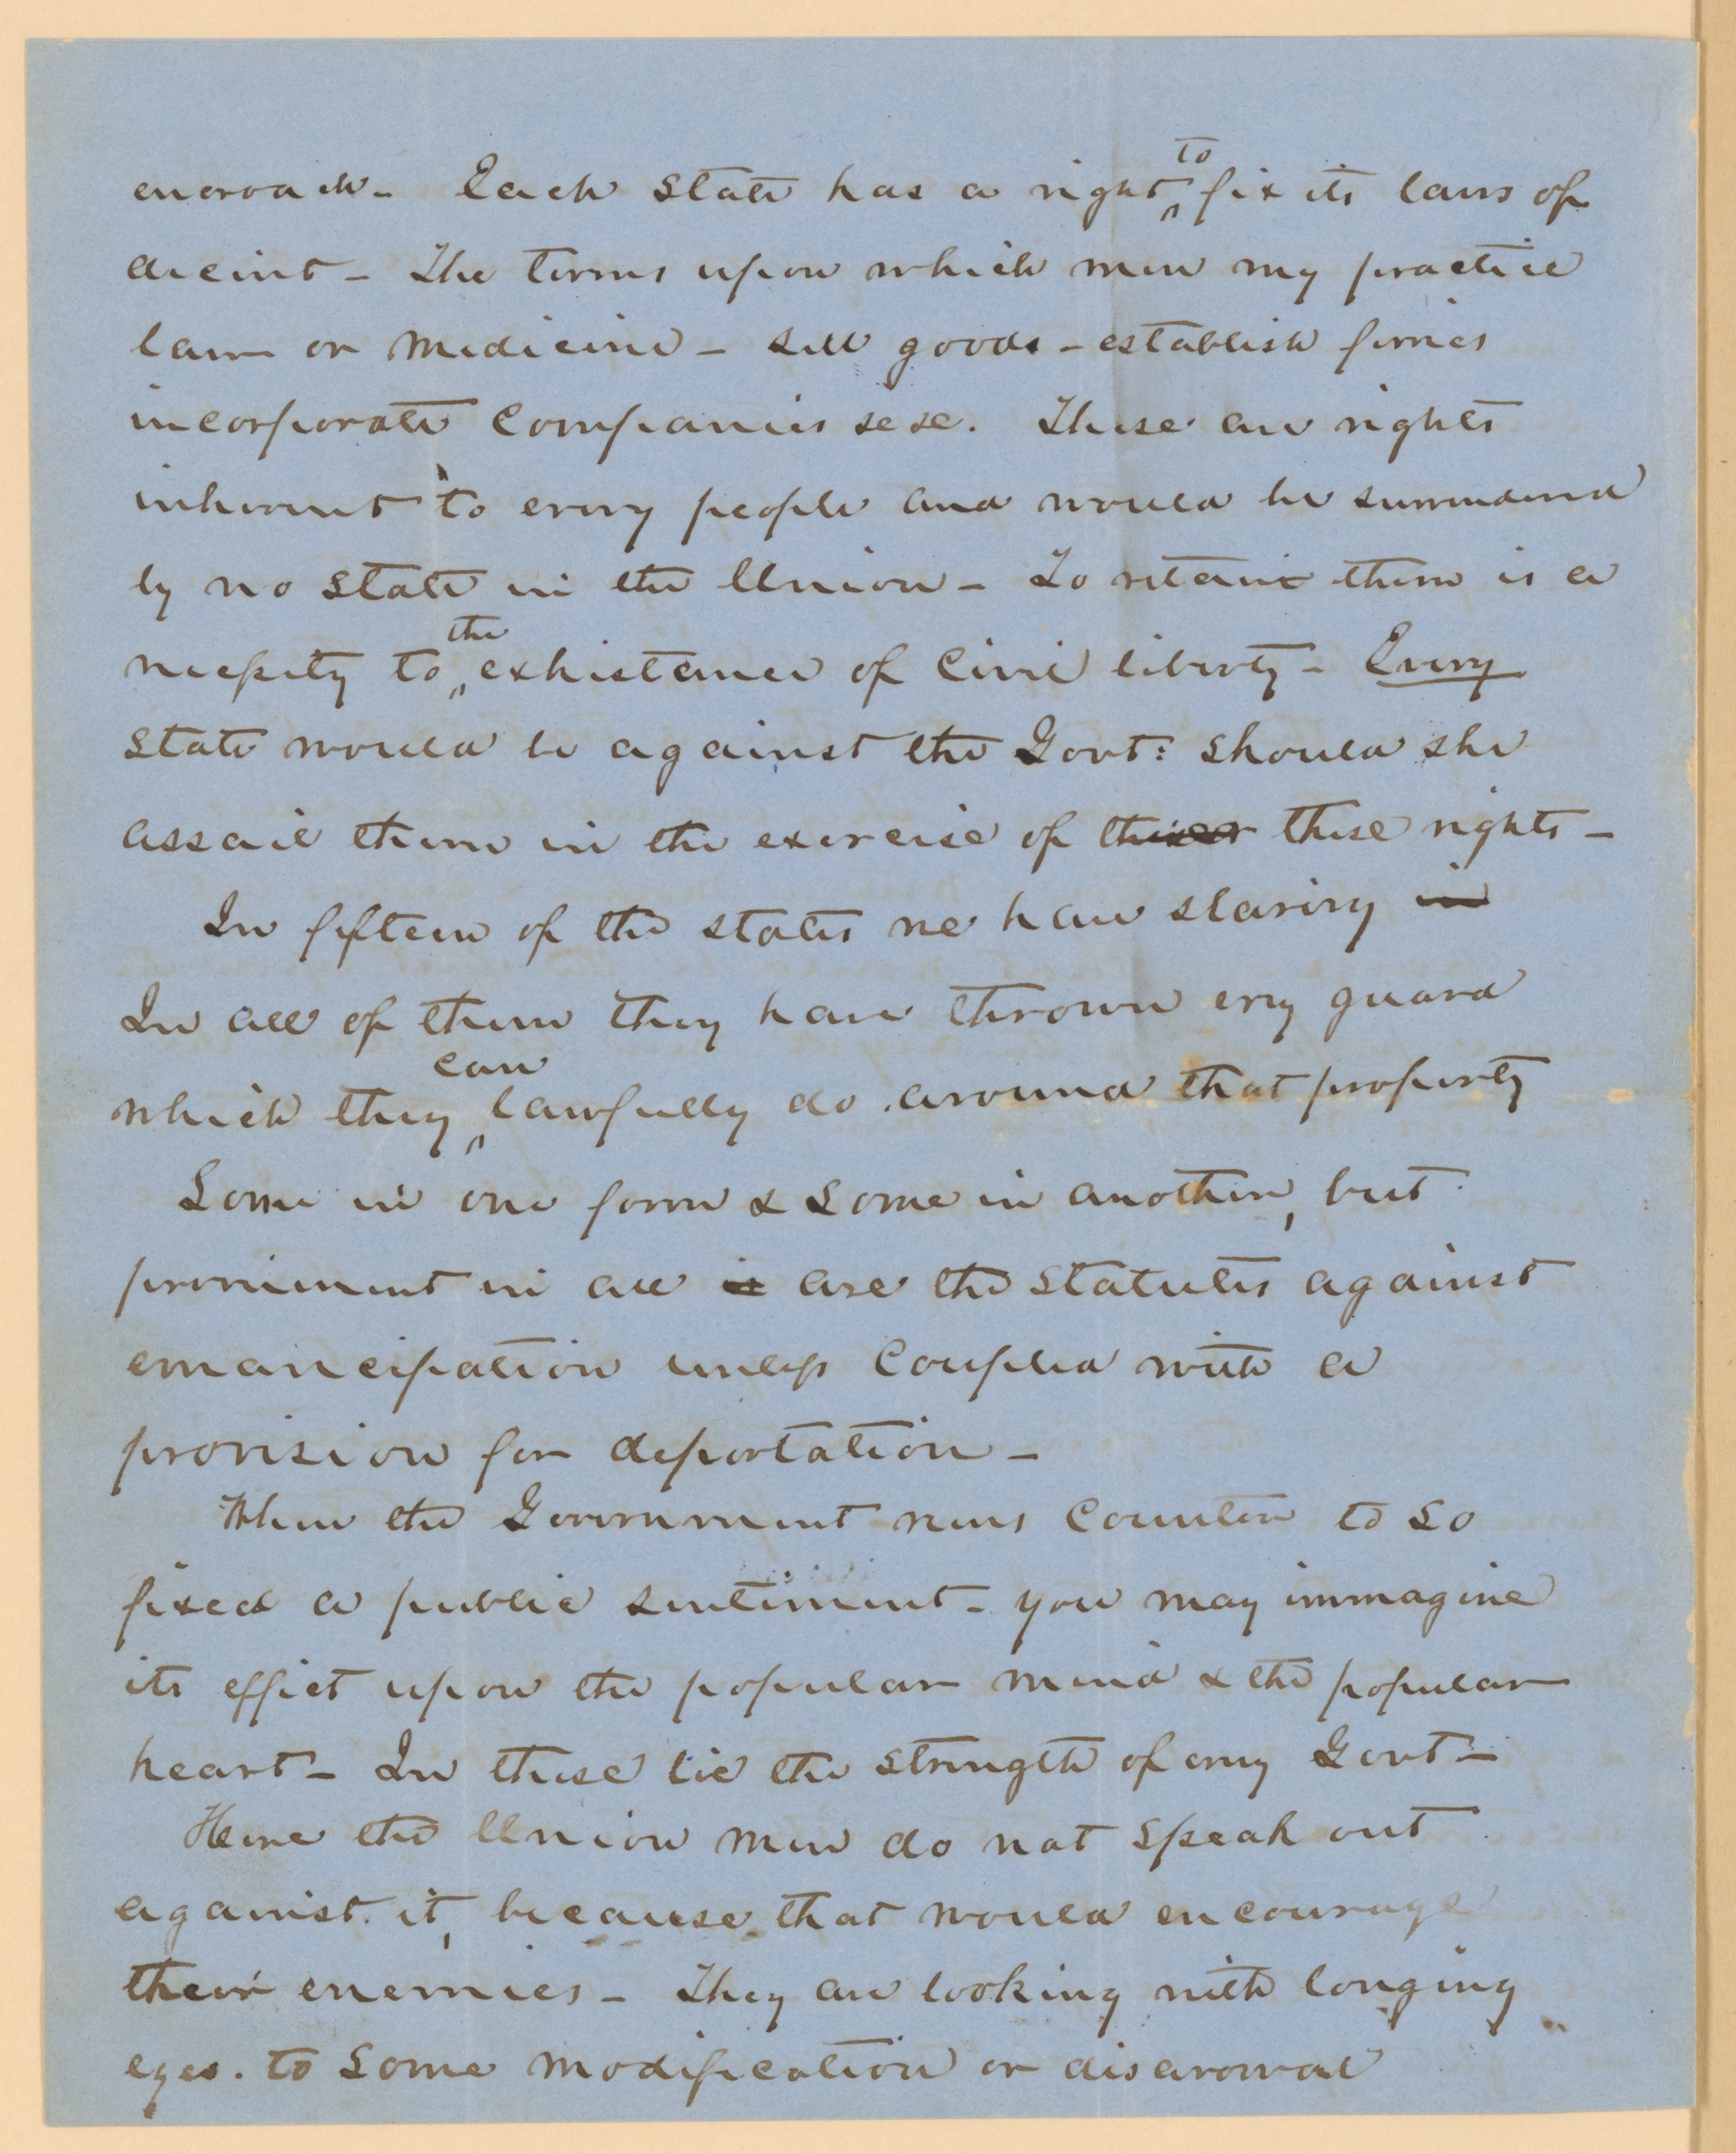 encroach - Each State has a right to fix its laws of
decent - The terms upon which men my practice
law or medicine - sell goods - establish ferries
incorporate Companies &c &c. These are rights
inherent to every people and would be surrendered
by no State in the Union - To retain them is a
necessity to the exhistence of Civil liberty - Every
State would be against the Govt: should she
assail them in the exercise of these rights -
In fifteen of the states we have slavery in
In all of them they have thrown evry guard
which they can lawfully do around that property
Some in one form & Some in another, but
prominent in all is are the Statutes against
emancipation unless Coupled with a
provision for deportation -
When the Government runs Counter to so
fixed a public sentiment - you may immagine
its effect upon the popular mind & the popular
heart - In these lie the strength of any Govt -
Here the Union men do not speak out
against it, because that would encourage
their enemies - They are looking with longing
eyes. to Some modification or disavowal